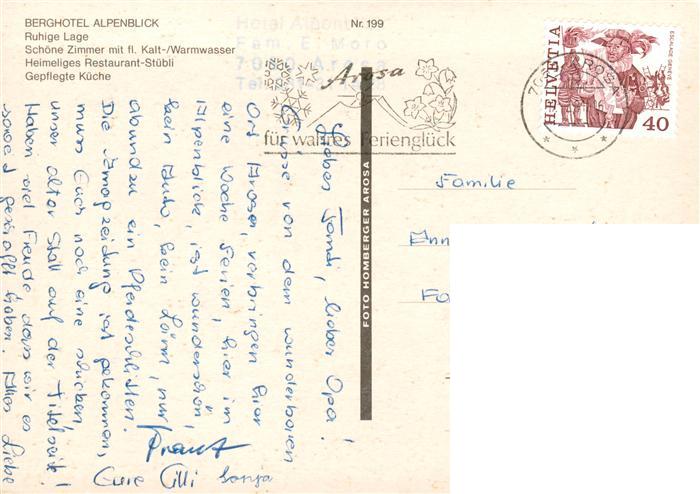 BERGHOTEL ALPENBLICK
Ruhige Lage
Schöne Zimmer mit fl. Kalt-/Warmwasser
Heimeliges Restaurant-Stübli
Gepflegte Küche
Nr. 199
Hotel Alpenblick
Fam. E. Moro
7050 Arosa
Arosa
für wahres Ferienglück
AROSA
HELVETIA
ESCALADE GENÈVE
40
FOTO HOMBERGER AROSA
Familie
Lieber Fandi, lieber Opa!
Grüsse von dem wunderbaren
Ort Arosa, verbringen hier
eine Woche Ferien, hier im
Alpenblick, ist wunderschön,
kein Auto, kein Lärm, nur
ab und zu ein Pferdeschlitten.
Die Amagzeidung ist gekommen,
muss Euch noch eine schicken,
unser alter Stall auf der Titelseite!
Haben viel Freude dass wir es
soweit geschafft haben. Alles Liebe
Eure Cilli Sonja
Franz